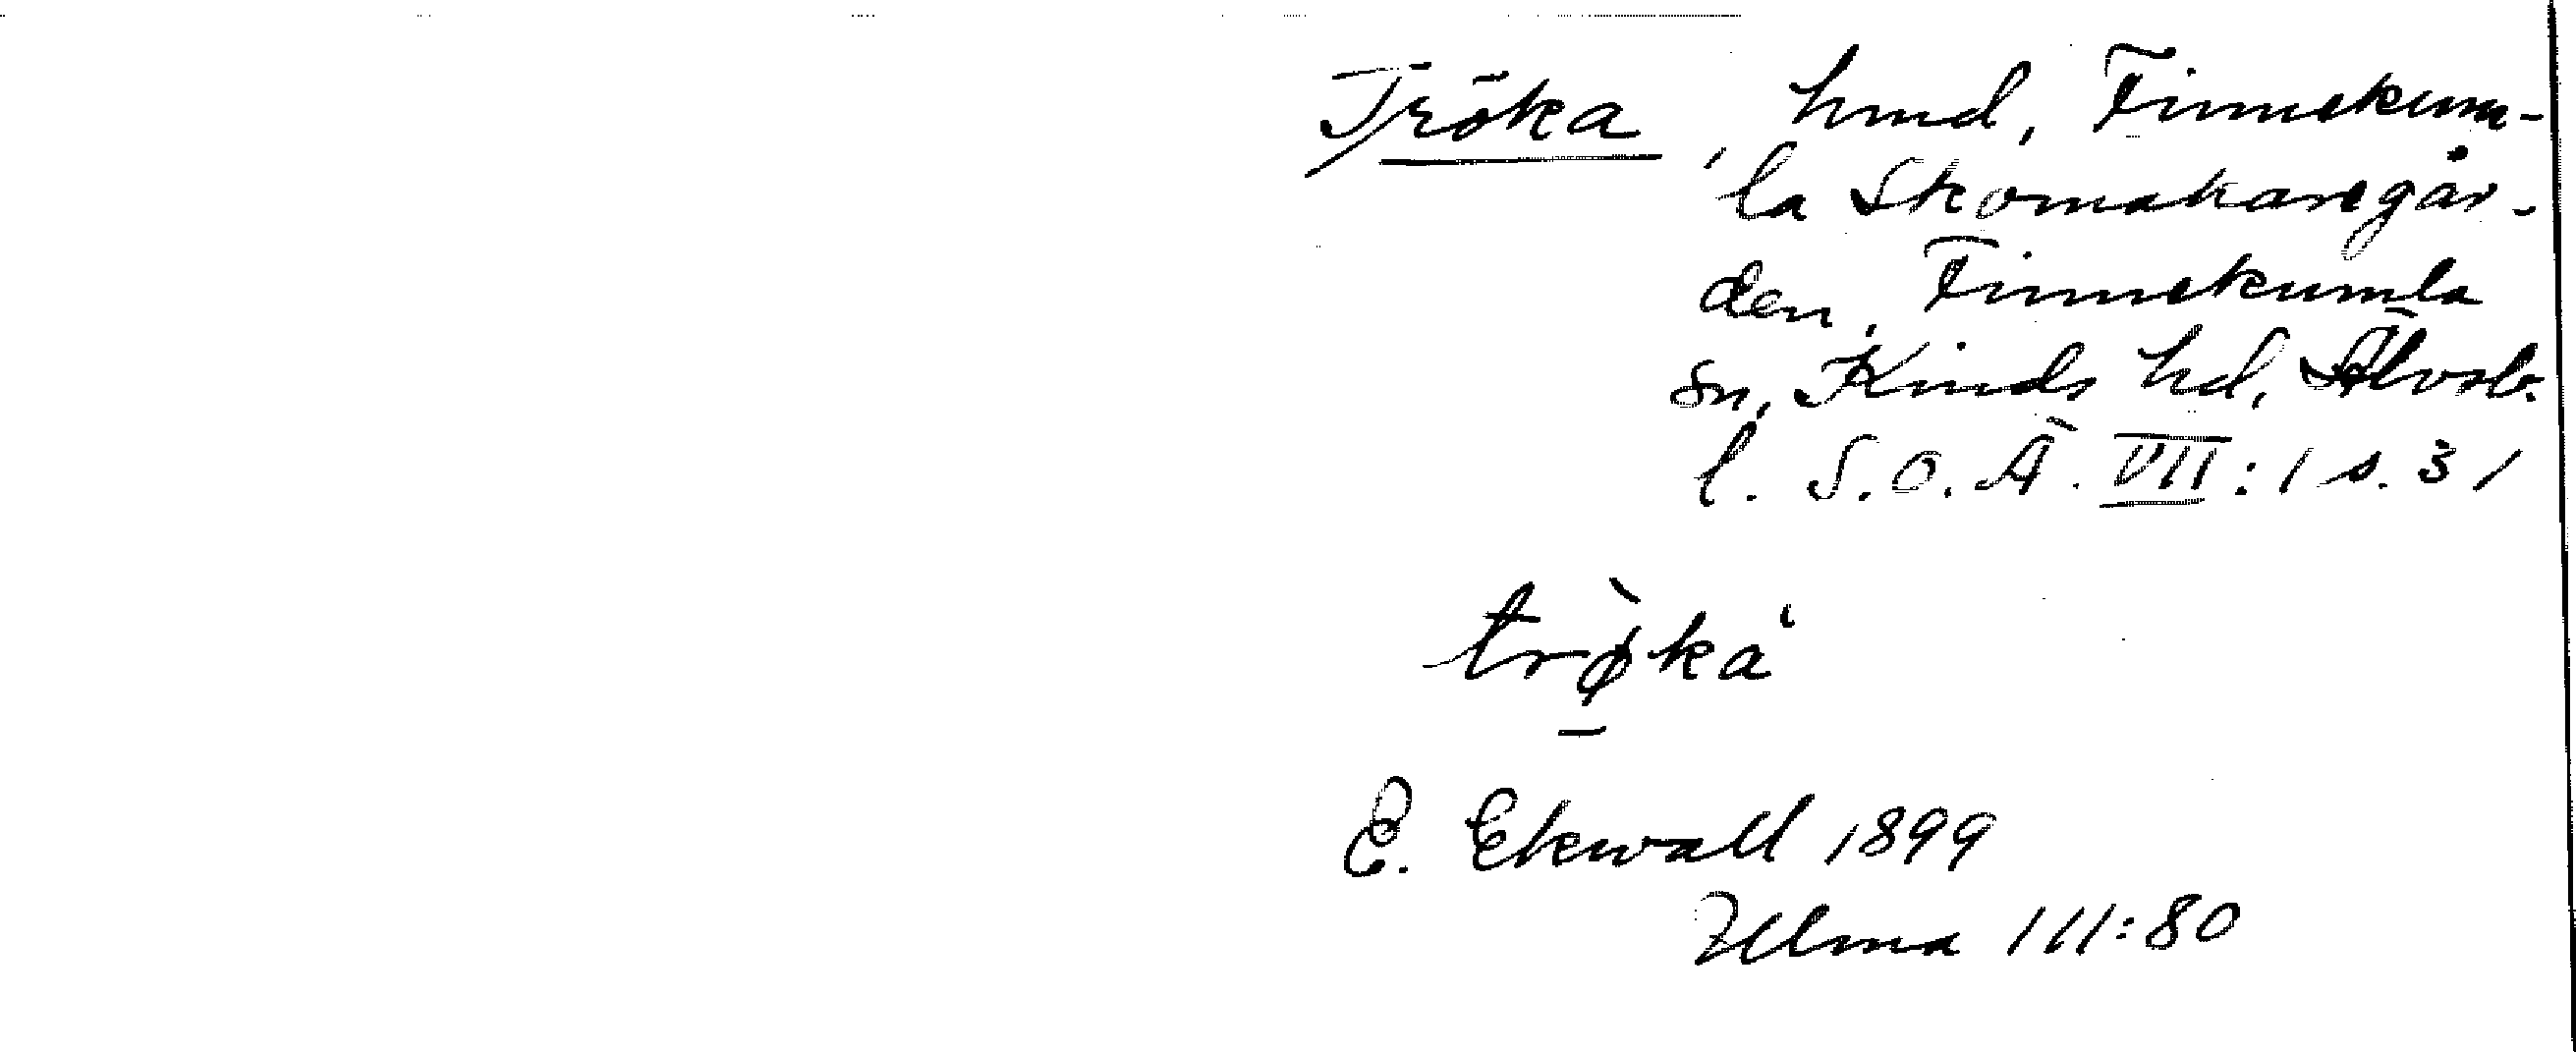 Tröka, hmd, Finnekum-
la Skomakaregår-
den, Finnekumla
sn, Kinds hd, Älvsb.
l. S.O.Ä. VII: 1 s. 31
trø̀ka
E. Ekwall 1899
Ulma 111:80